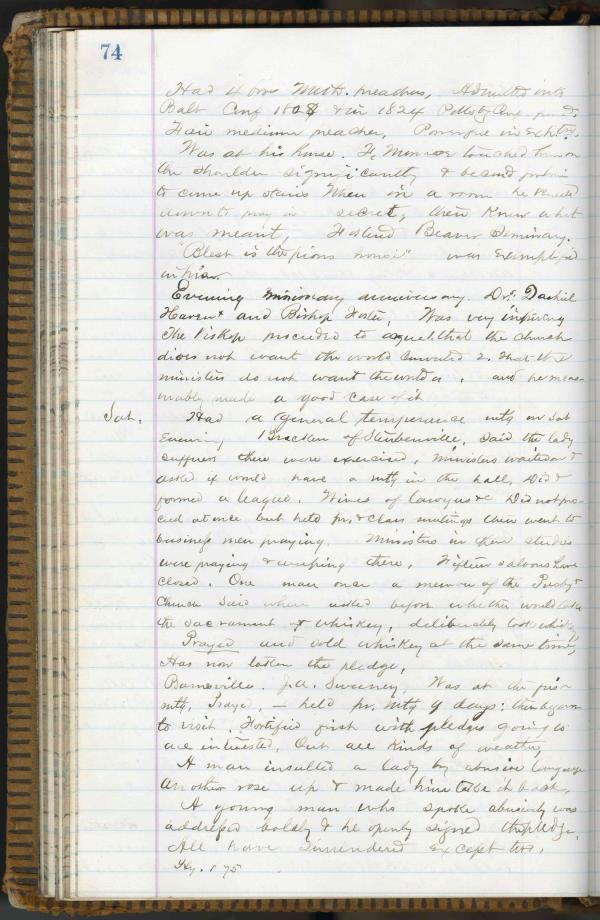 74
Had 4 Meth. preachers, Admitted into
Balt Conf 1808 & in 1824
Fair medium preacher, Powerful in
Was at his house. touched him on
the shoulder significantly, &
to come up stairs When in a room he
down to pray in secret, then knew what
was meant, Beaver Seminary.
"Blest is the pious house" was exemplified
in
Evening missionary anniversary. Drs. Dashiel
and Bishop Foster, Was very inspiring
The Bishop proceeded to that the church
does not want the world 2. that the
ministers do not want the world , and he
made a good case of it
Sat. Had a general temperance mtg on Sat
Evening, of Steubenville, said the lady
there were exercised, Ministers waited on &
asked if would have a mtg in the hall, Did &
formed a league. Wives of lawyers &c Did not pro-
ceed at once but held pr. & class meetings then went to
business men praying. Ministers in their studies
were praying & weeping there, Fifteen saloons have
closed. One man once a member of the Presbyt
Church said when asked before whether would take
the sacrament or whiskey, deliberately took whisky,
Prayed and sold whiskey at the same time,
Has now taken the pledge,
Barnesville. J.A. Sweeney, Was at the first
mtg, – held pr. mtg 9 days: then began
to visit, Fortified first with pledges going to
all interested, Out all kinds of weather,
A man insulted a lady by abusive language
Another rose up & made him take it back,
A young man who spoke abusively was
addressed boldly & he openly signed the pledge,
All have surrendered except two,
Hy. 175